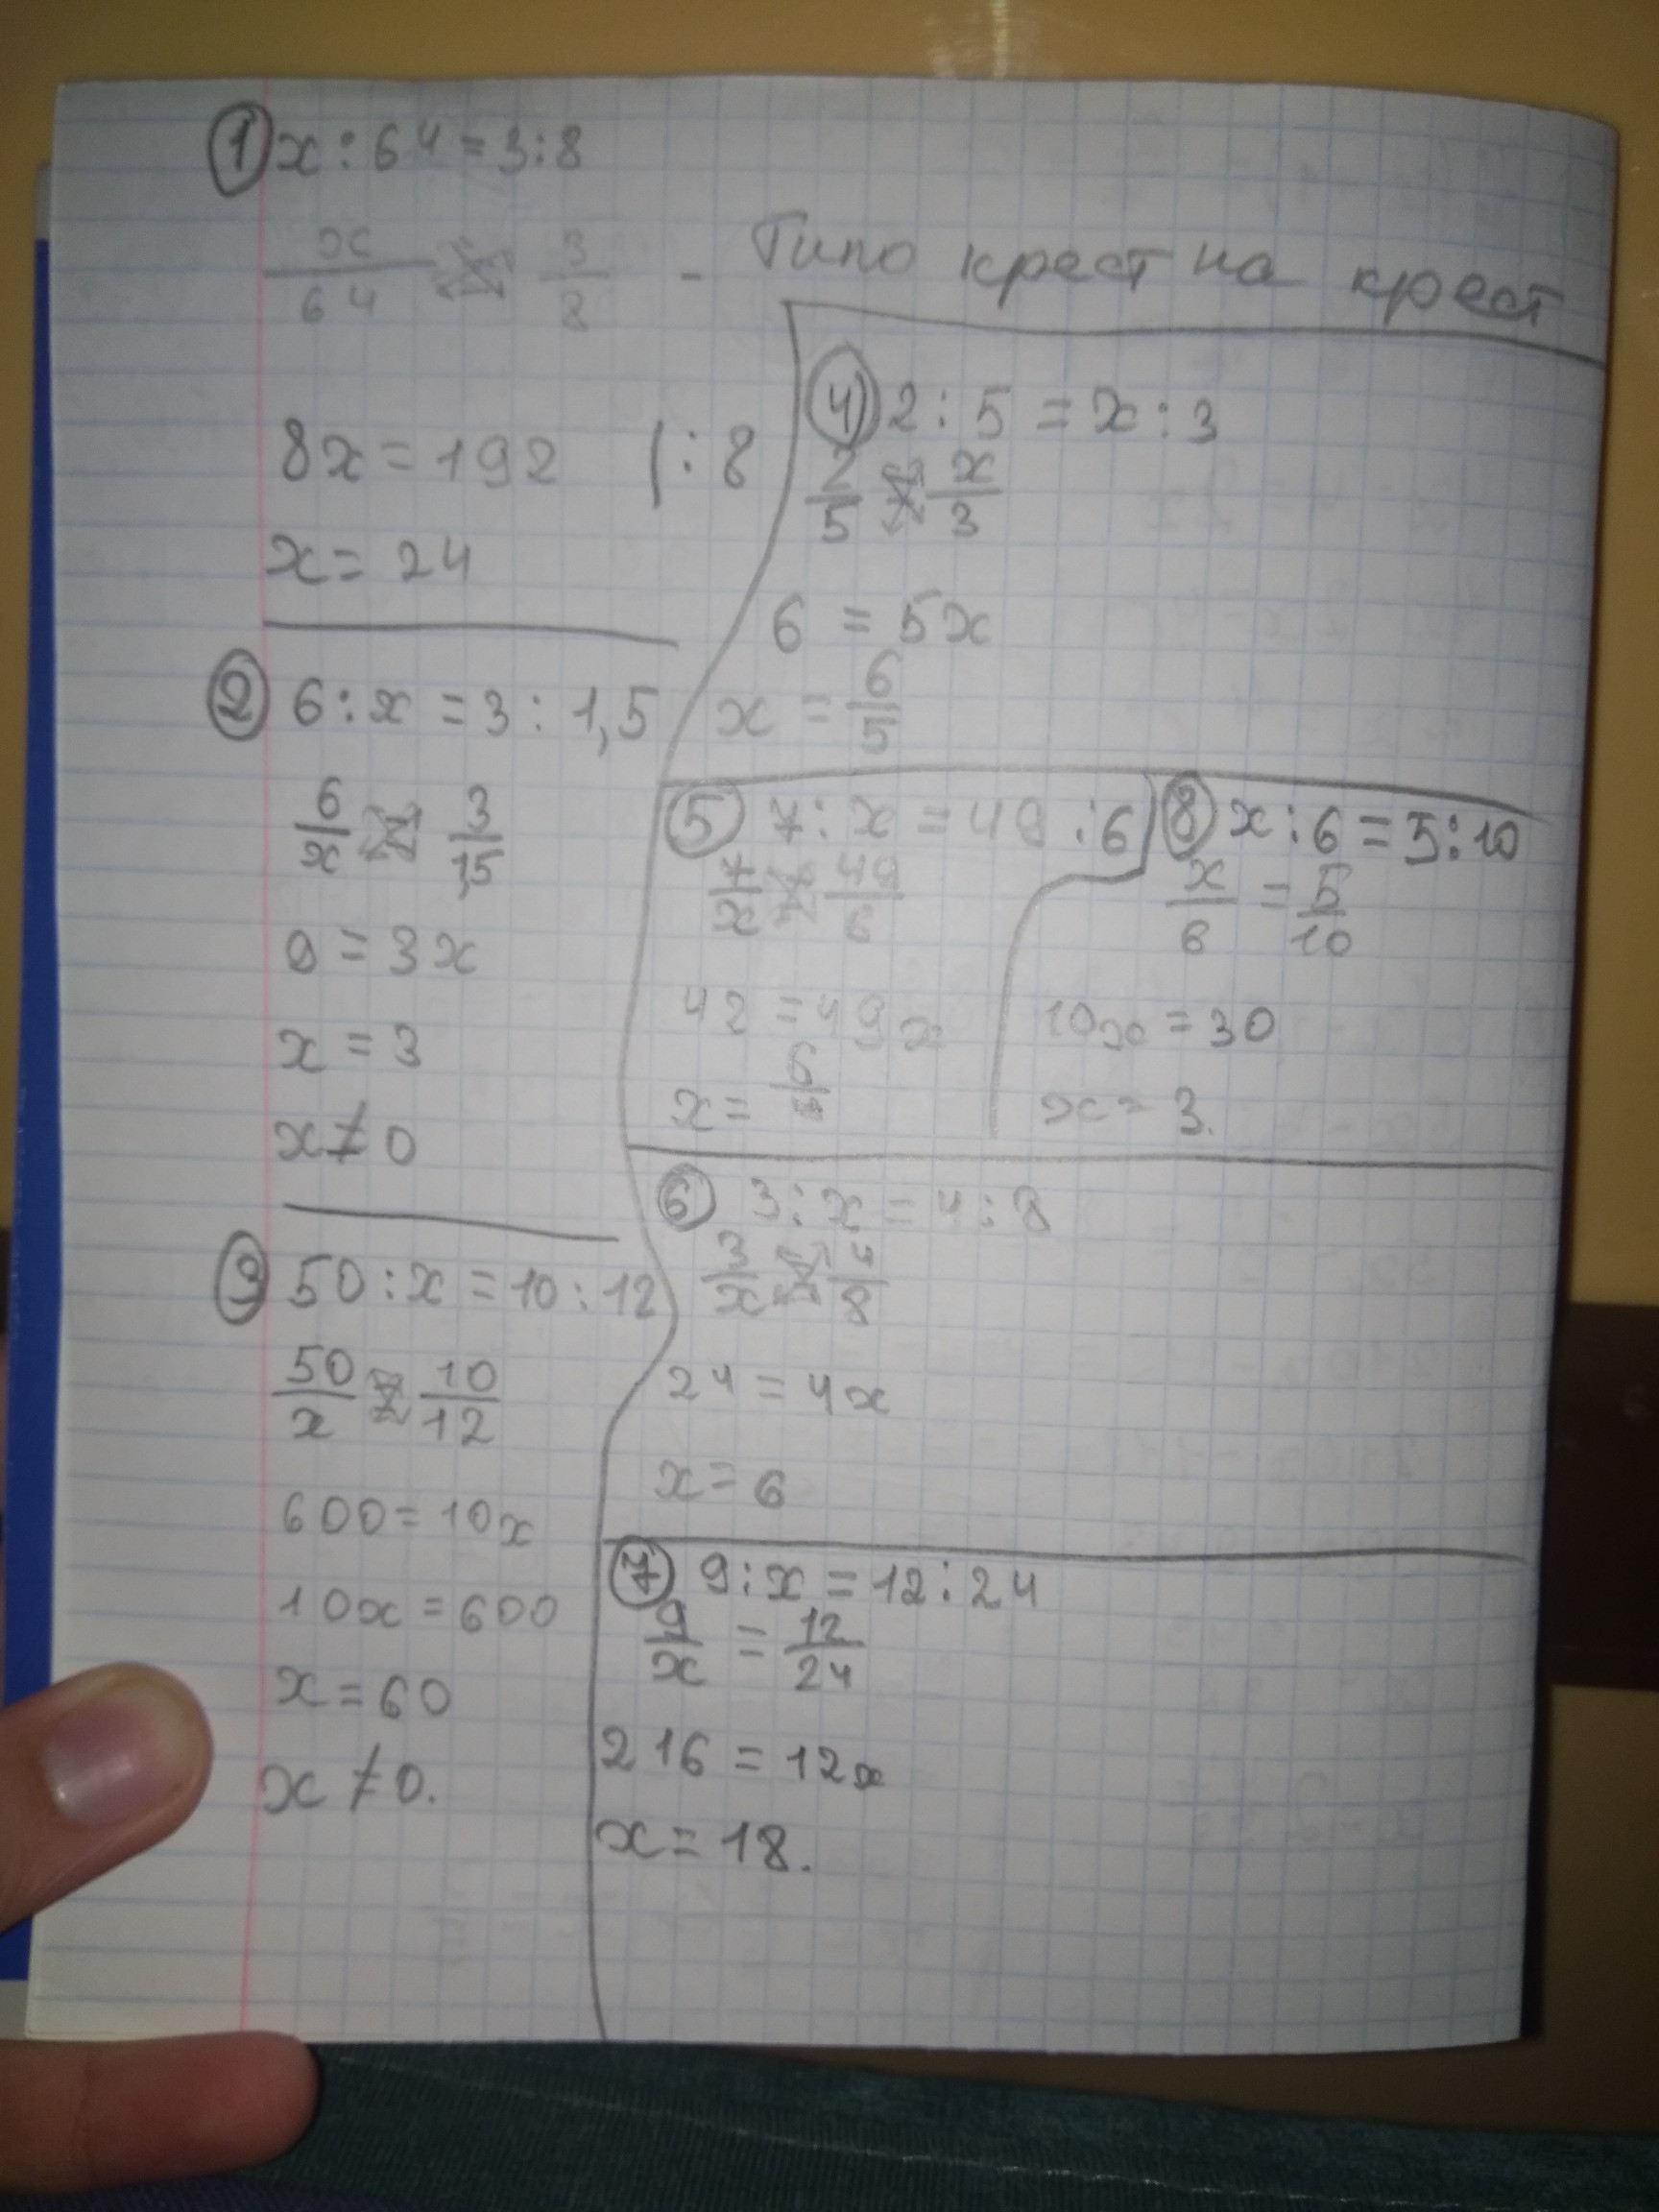 ① x : 64 = 3 : 8
x/64 3/8 - Типо крест на крест
8x = 192 | : 8
x = 24
② 6 : x = 3 : 1,5
6/x 3/1,5
9 = 3x
x = 3
x ≠ 0
③ 50 : x = 10 : 12
50/x 10/12
600 = 10x
10x = 600
x = 60
x ≠ 0.
④ 2 : 5 = x : 3
2/5 x/3
6 = 5x
x = 6/5
⑤ 7 : x = 49 : 6
7/x 49/6
42 = 49x
x = 6/
⑧ x : 6 = 5 : 10
x/6 = 5/10
10x = 30
x = 3.
⑥ 3 : x = 4 : 8
3/x 4/8
24 = 4x
x = 6
⑦ 9 : x = 12 : 24
9/x = 12/24
216 = 12x
x = 18.